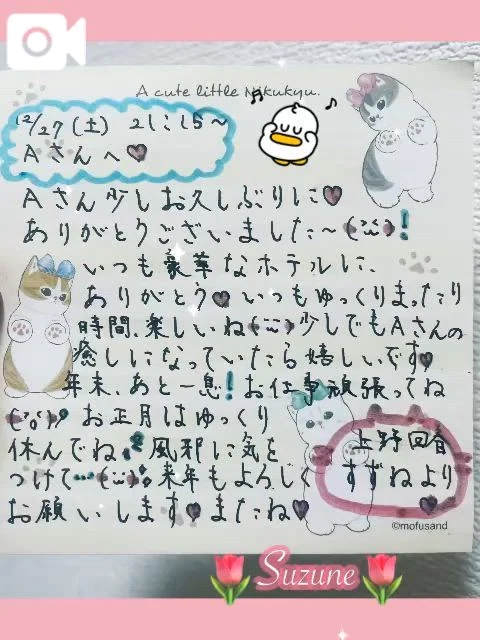 A cute little Nikukyu.
12/27(土) 21:15~
Aさんへ♥
Aさん少しお久しぶりに♥
ありがとうございました~!
いつも豪華なホテルに、
ありがとう♥いつもゆっくりまったり
時間、楽しいね 少しでもAさんの
癒しになっていたら嬉しいです♥
年末、あと一息!お仕事頑張ってね
お正月はゆっくり
休んでね 風邪に気を
つけて… 来年もよろしく
お願いします♥またね♥
上野回春
すずねより
©mofusand
Suzune